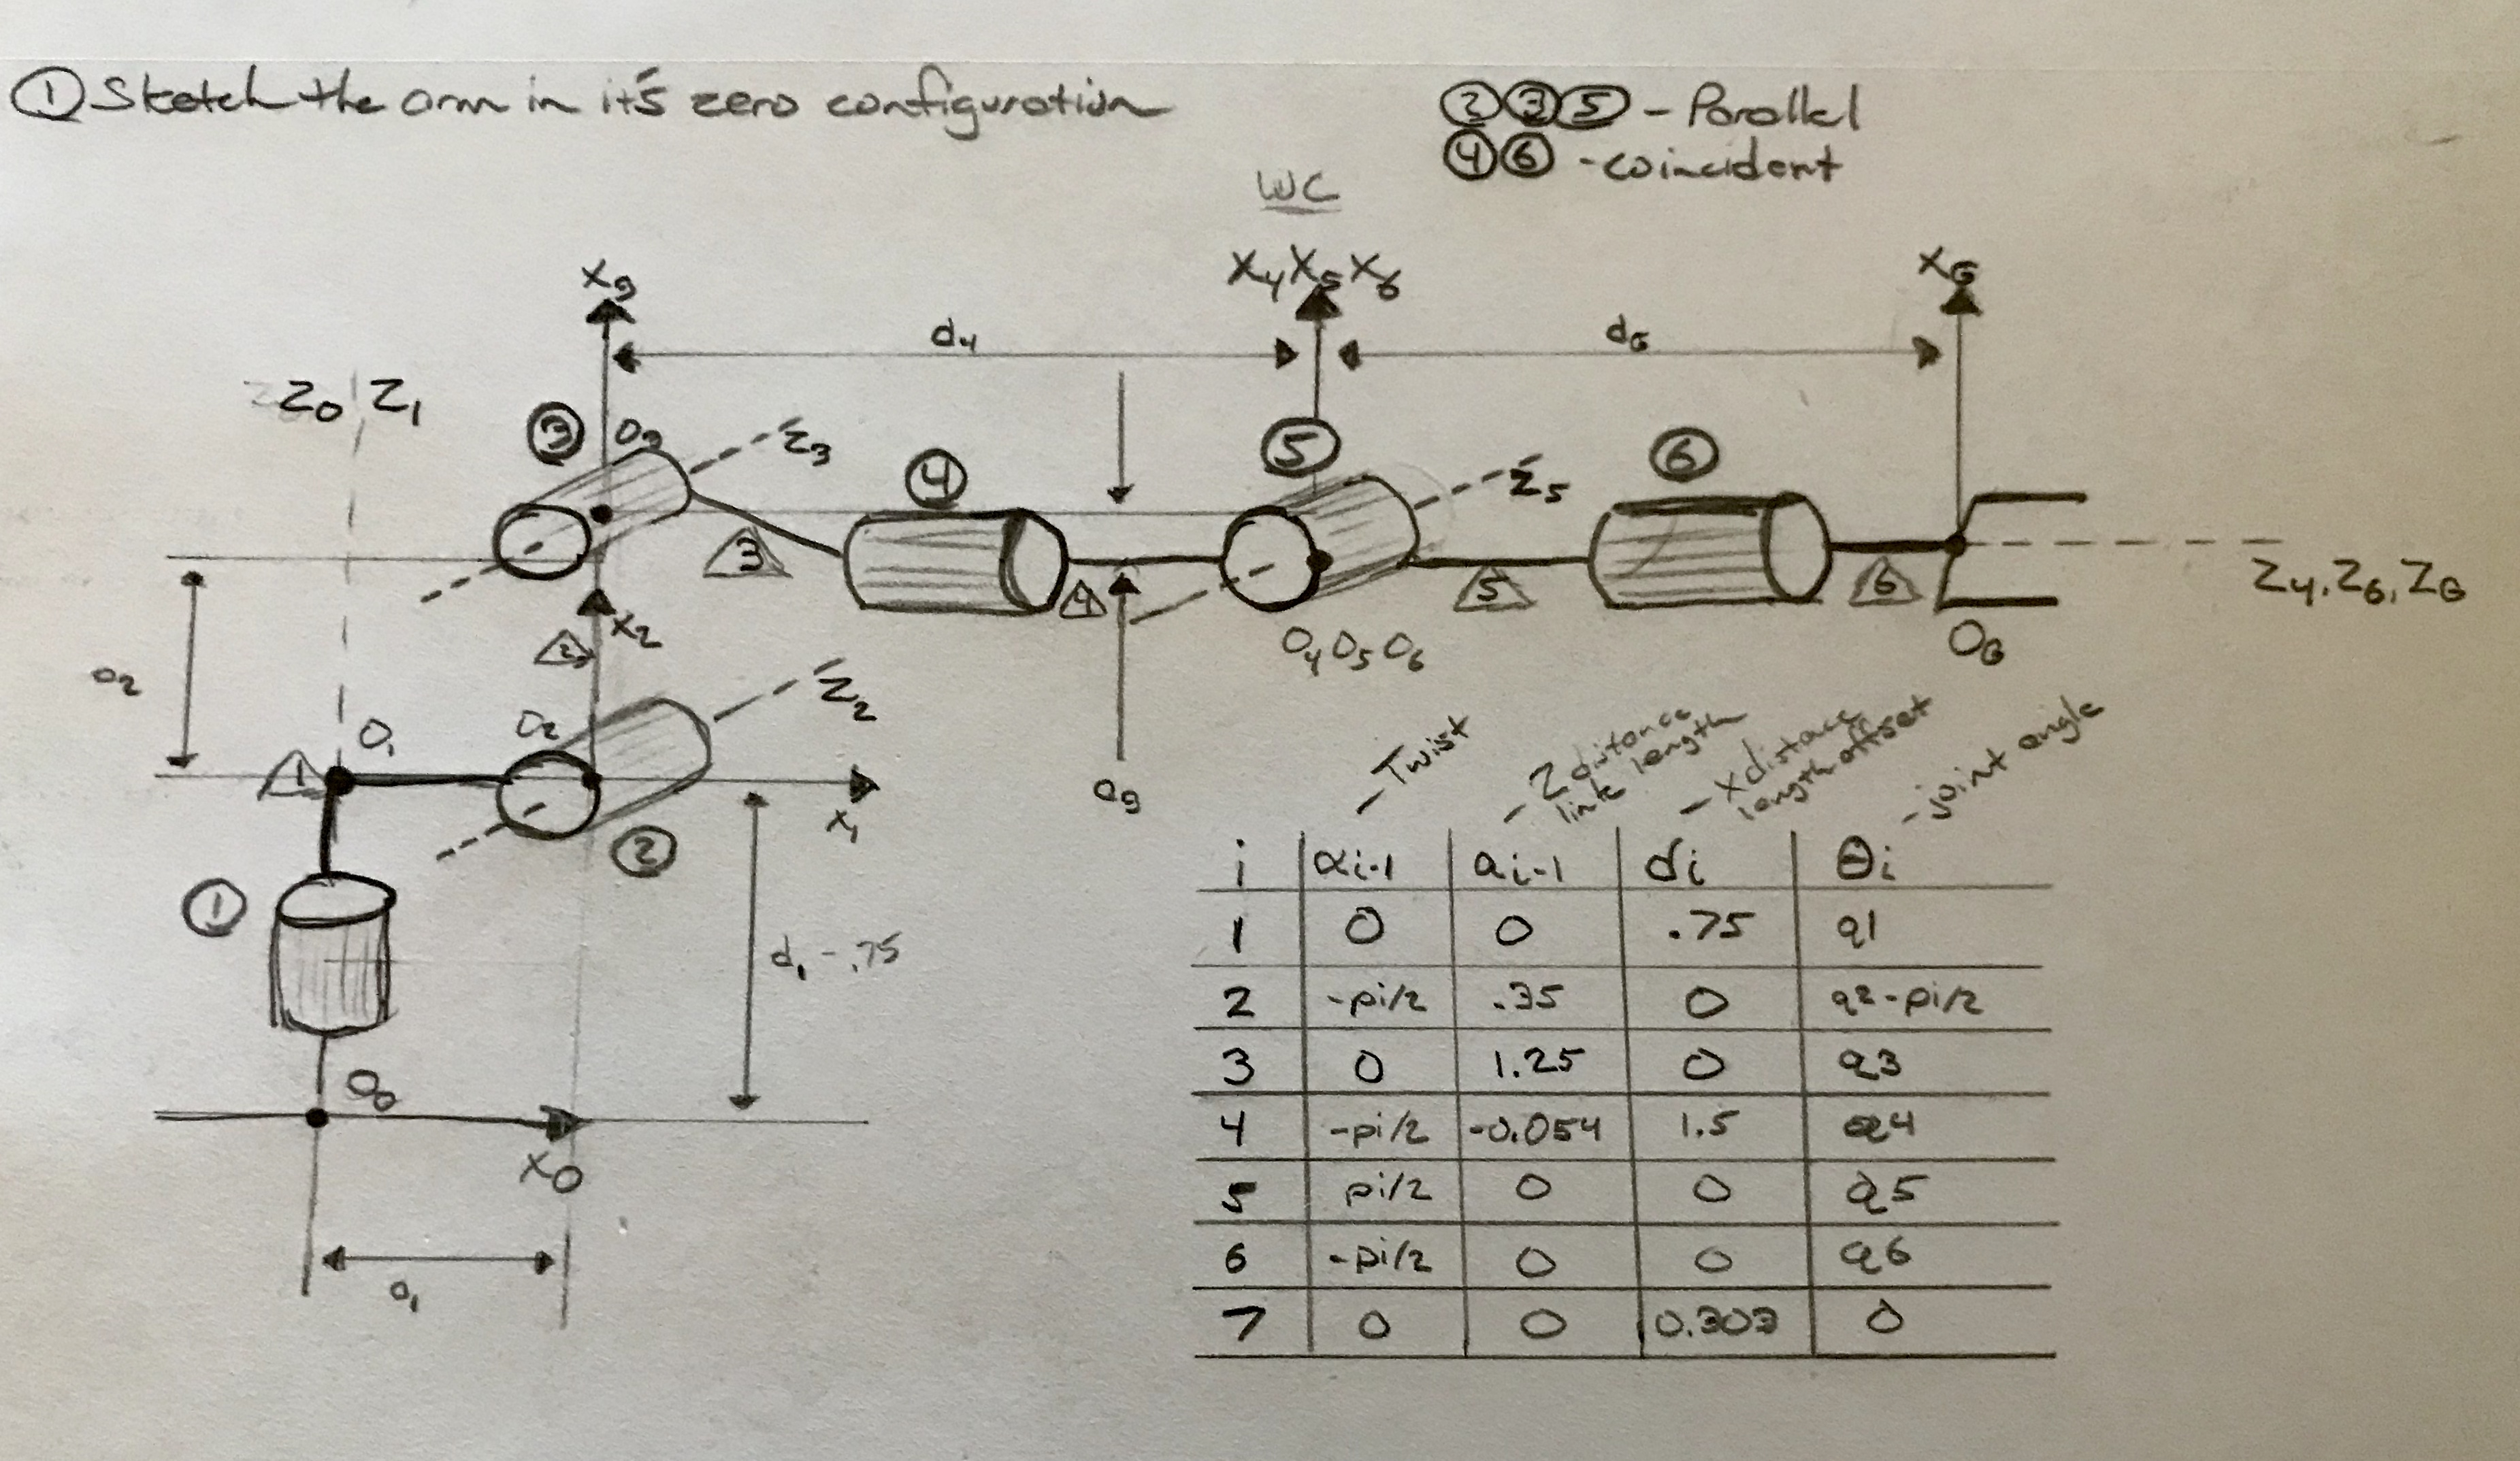 ① Sketch the arm in it's zero configuration
② ③ ⑤ - Parallel
④ ⑥ - coincident
WC
X3
X4 X5 X6
XG
d4
dG
Z0 Z1
③ O3
Z3
④
⑤
Z5
⑥
3
4
5
6
Z4, Z6, ZG
X2
2
a2
O4 O5 O6
OG
Z2
O1
O2
1
X1
a3
②
①
d1 - .75
O0
X0
a1
- Twist
- Z distance link length
- X distance length offset
- joint angle
i αi-1 ai-1 di θi
1 0 0 .75 q1
2 -pi/2 .35 0 q2-pi/2
3 0 1.25 0 q3
4 -pi/2 -0.054 1.5 q4
5 pi/2 0 0 q5
6 -pi/2 0 0 q6
7 0 0 0.303 0